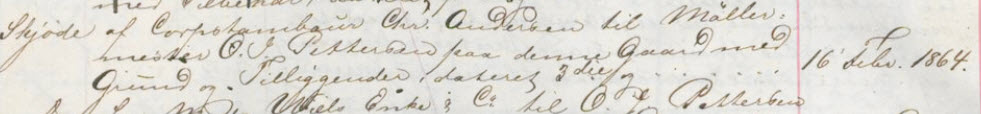 Skjöde af Corpstambour Chr. Andersen til Möller-
mester O. J. Pettersen paa denne Gaard med
Grund og Tilliggender, dateret 3die og . . . . . . 16 Febr. 1864.
Niels Enke & Co til O. J. Pettersen